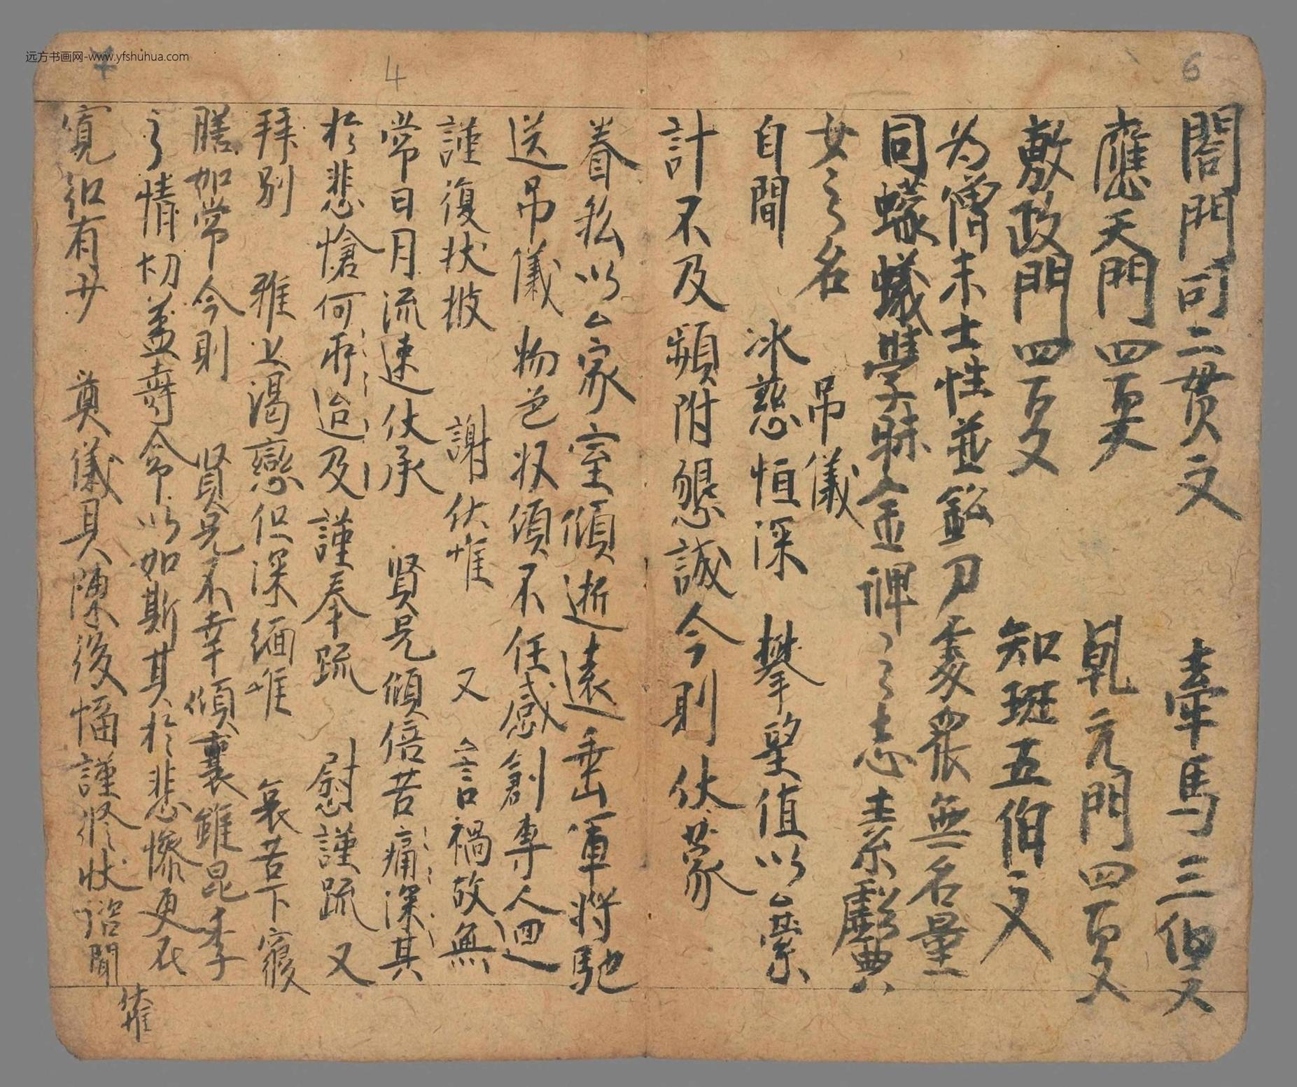 远方书画网-www.yfshuhua.com
6
4
4
閤門司二贯文 牽馬三伯文
應天門四百文 乹元門四百文
敷政門四百文 知班五伯文
为僧未士性並鈆刀 無名量
同蠓蟻學昧金 之志素
女之名 吊儀
自間 冰慈恒深 攀望值以縈
計不及頻附懇誠今則伏蒙
眷私以家室傾逝遠垂軍将馳
送吊儀物色状領不任感創專人迴
謹復状披 謝伏惟 又 言禍故無
常日月流速伏承 贤兄傾倍苦痛深其
於悲愴何所迨及謹奉疏 慰謹疏 又
拜別 雅上渴戀但深緬惟 哀苦下寝
膳如常今則 贤兄不幸傾襄雖昆季
之情切盖壽命以如斯其於悲慘更在
寛紉有少 奠儀具陳後幅謹修状諮聞
伏惟